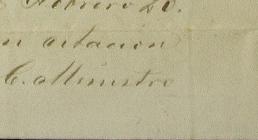 Febrero 20.
n estacion
C. Ministro